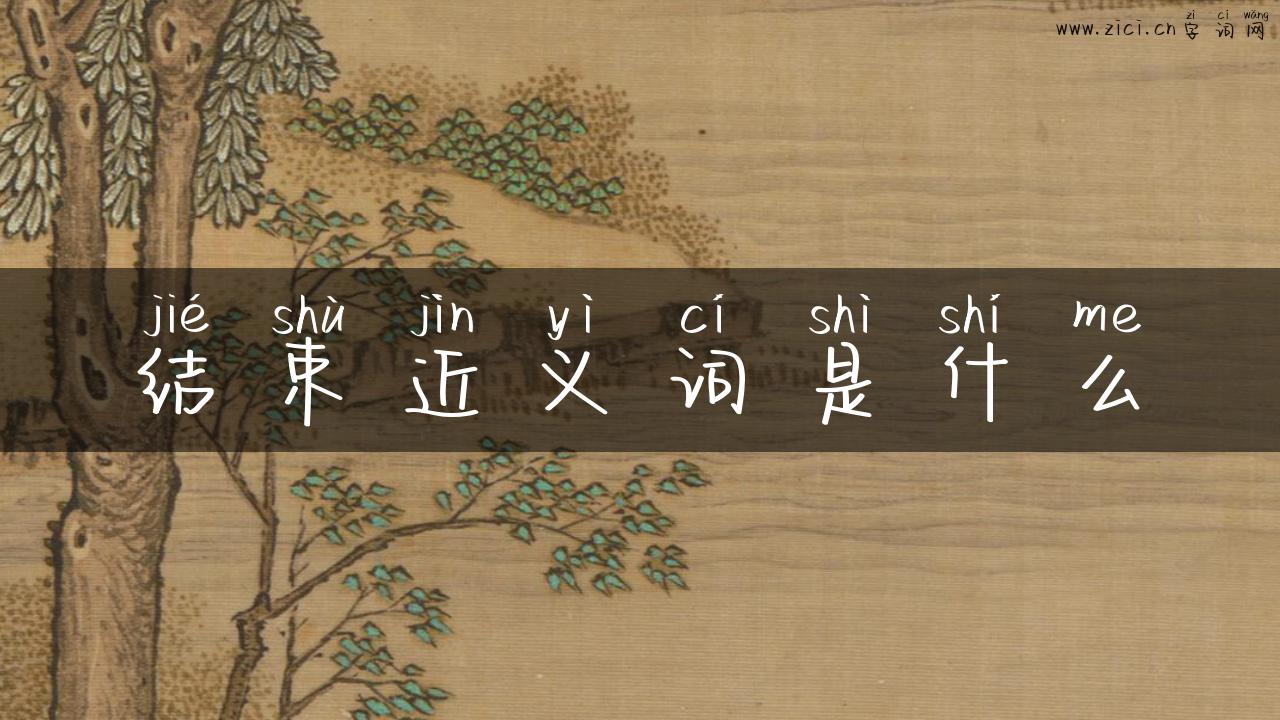 zì cí wǎng
www.zici.cn 字词网
jié shù jìn yì cí shì shí me
结束近义词是什么